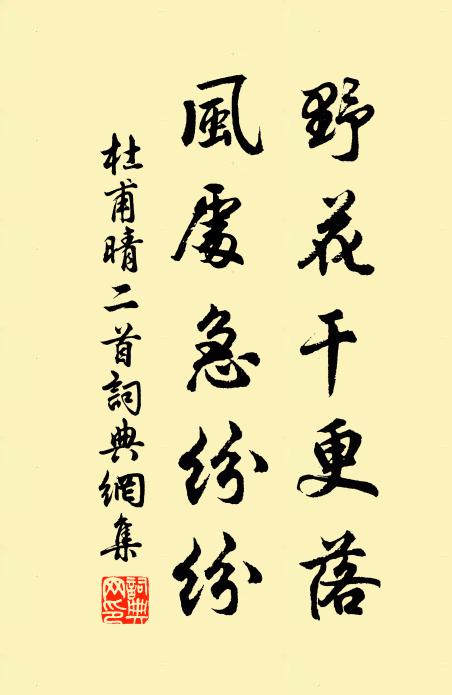 野花干更落
風處急紛紛
杜甫晴二首詞典網集
詞典網印